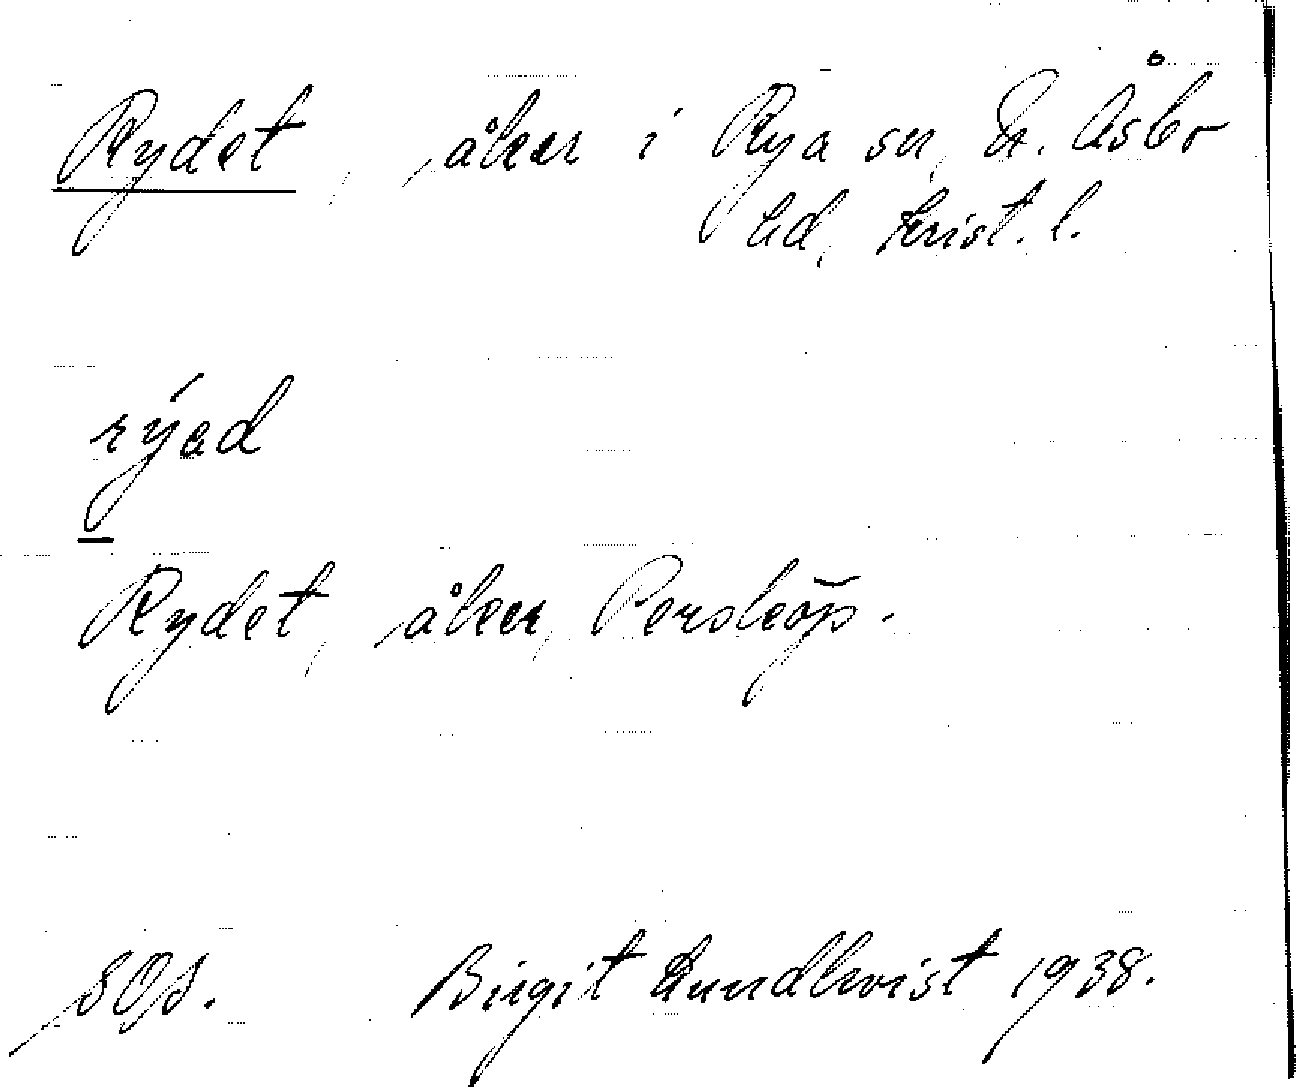 Rydet, åker i Rya sn, N. Åsbo
hd, Krist. l.
rýəd
Rydet, åker, Perstorp.
SOS. Birgit Lundkvist 1938.